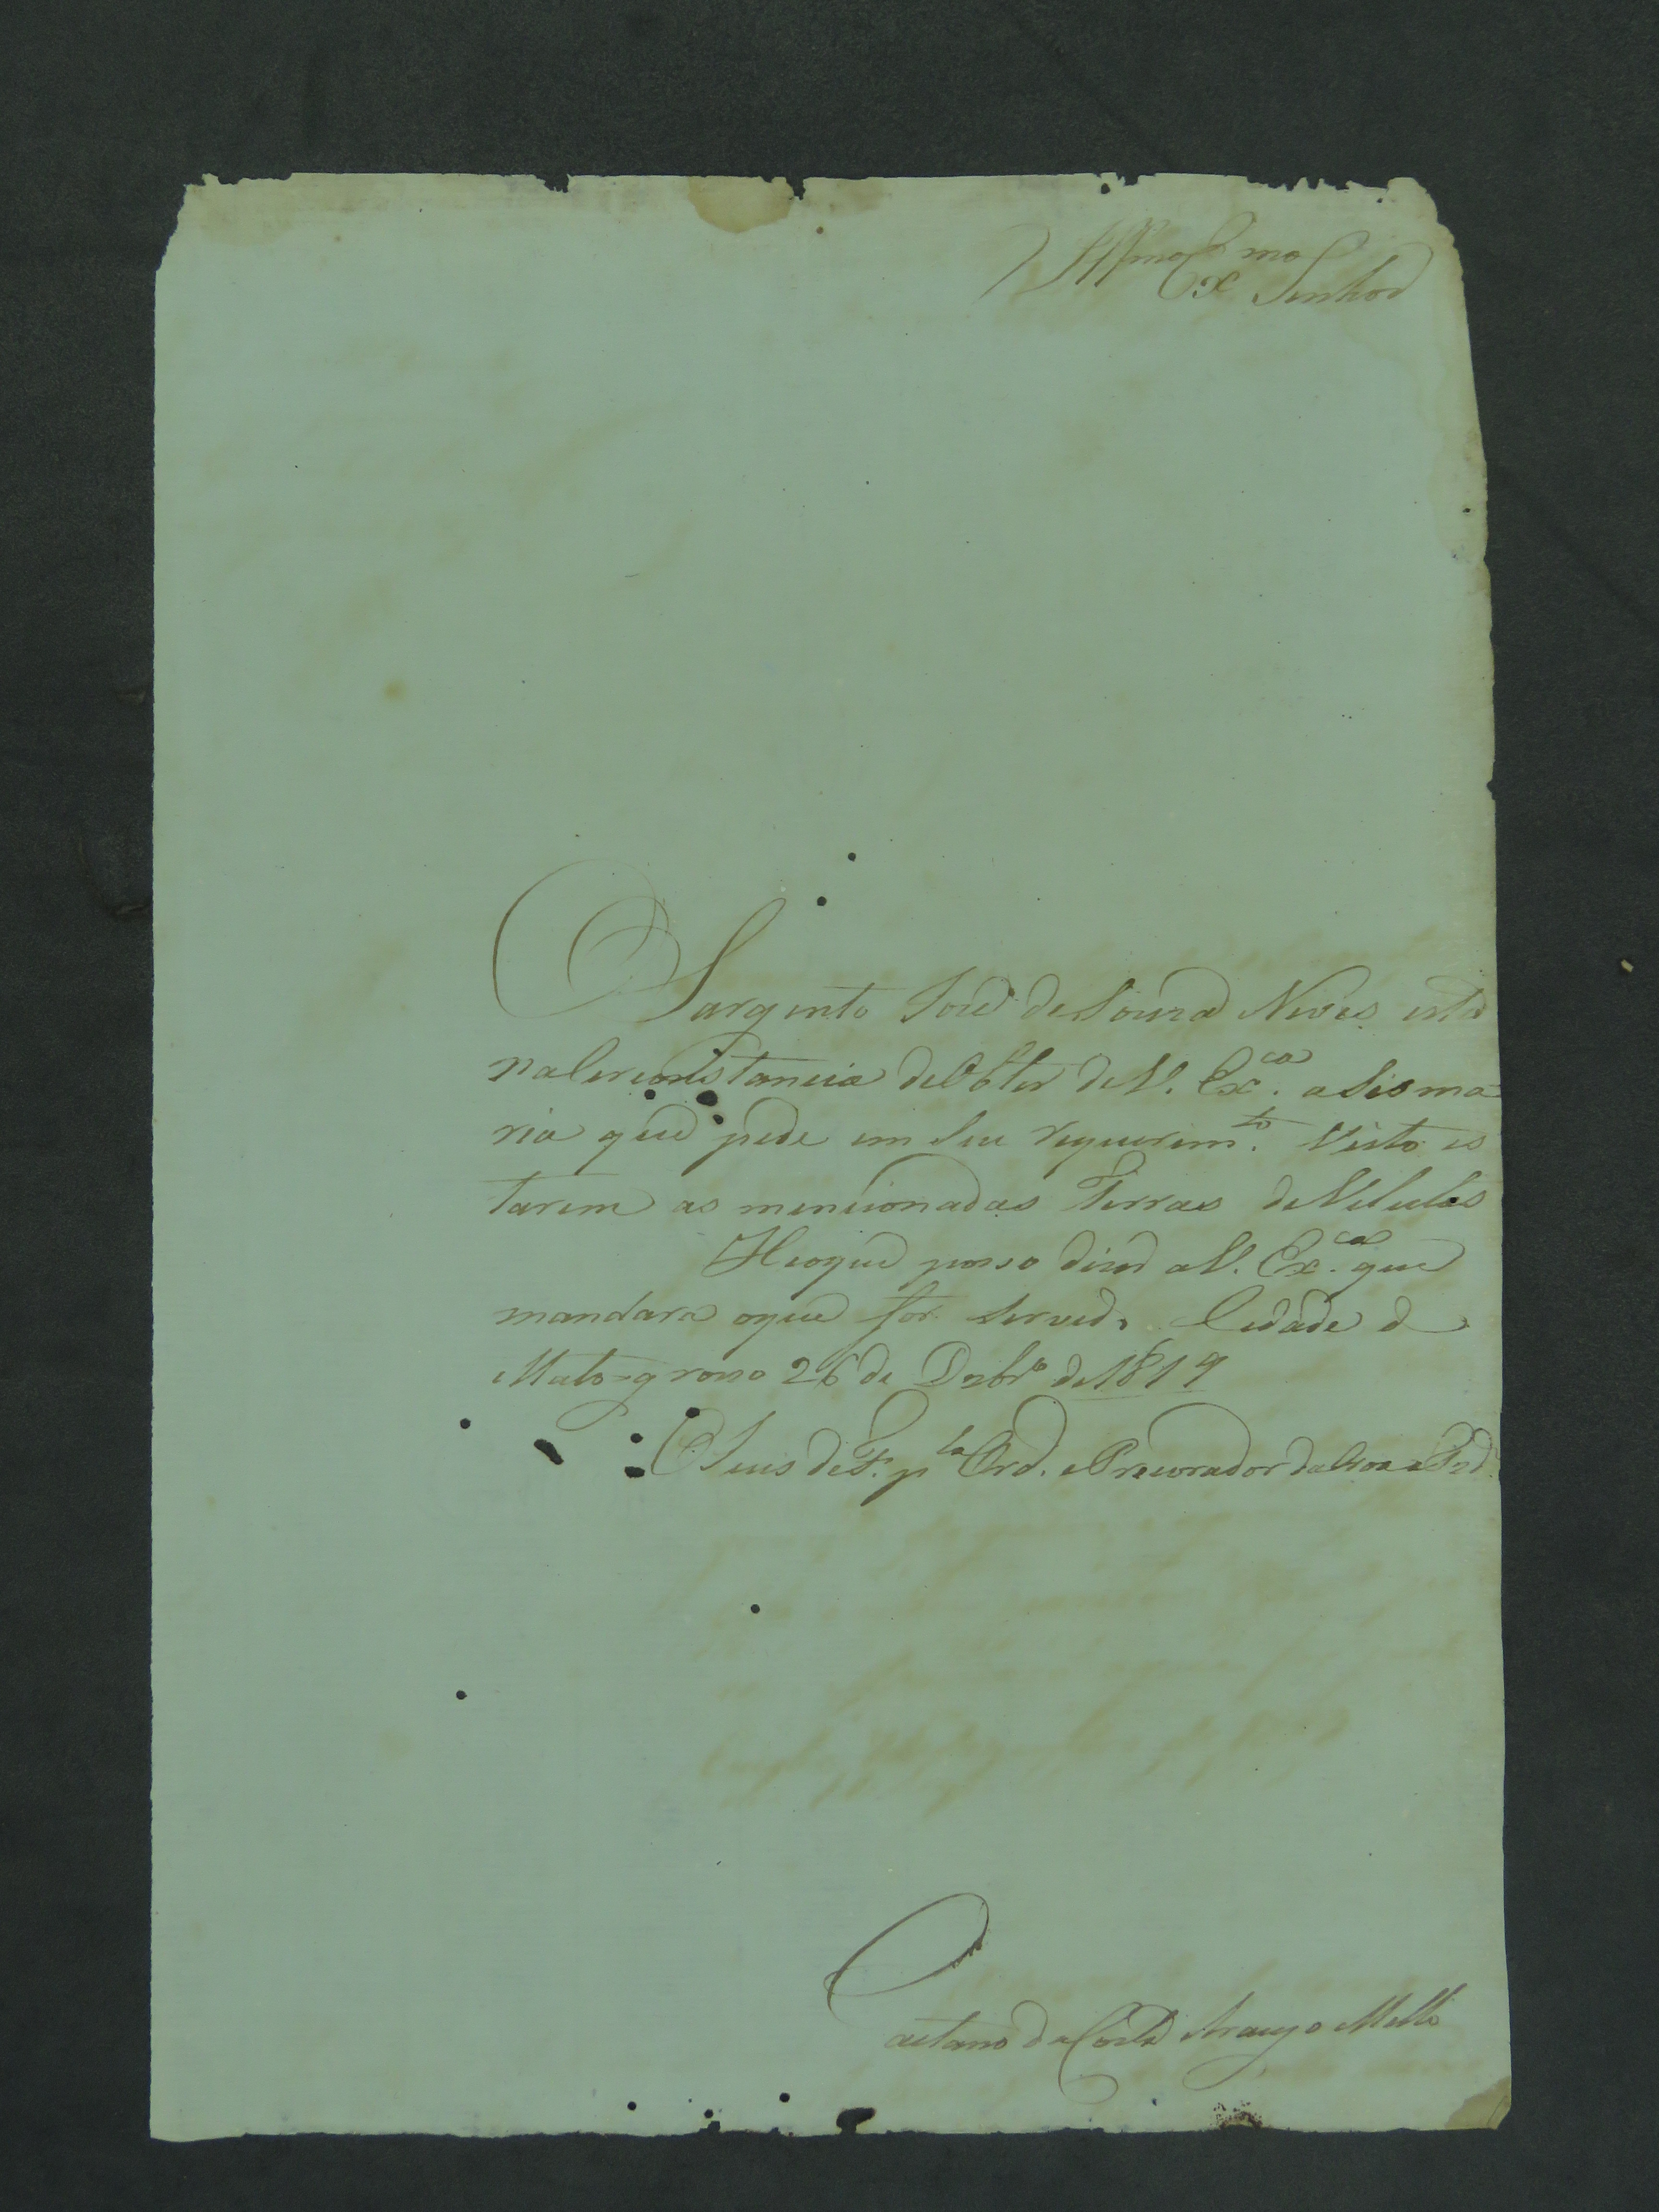 Illmo Exmo
Senhor
O Sargento José de Souza Neves está
na Circonstancia de Obter de V. Ex.ca a Sisma-
ria que pede em seu requerim.to Visto es
tarem as mencionadas Terras
He o que posso dizer a V. Ex.ca que
mandara o que for Servid. Cidade d
Mato-grosso 26 de Dzbr.o de 1819
O Juis de F. p la Ord. e Procurador da Croa e Fzd
Caetano da Costa Araujo Mello